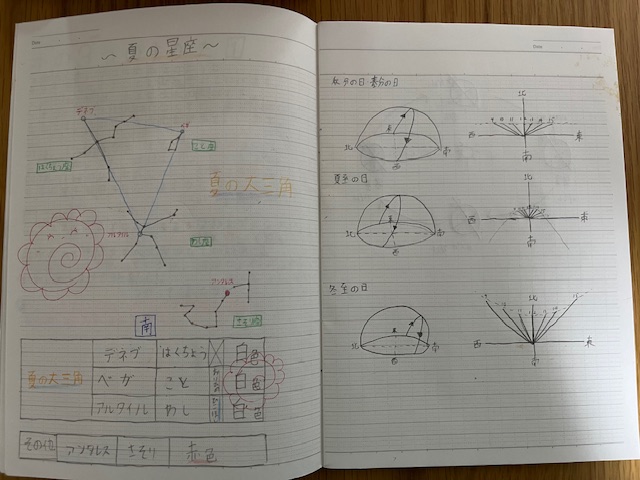 Date
～夏の星座～
デネブ
ベガ
こと座
はくちょう座
夏の大三角
アルタイル
わし座
アンタレス
さそり座
南
夏の大三角
デネブ はくちょう 白色
ベガ こと 白色
アルタイル わし 白色
その他 アンタレス さそり 赤色
Date
秋分の日・春分の日
北 東 南 西
北 西 東 南
夏至の日
北 東 南 西
北 西 東 南
冬至の日
北 東 南 西
北 西 東 南